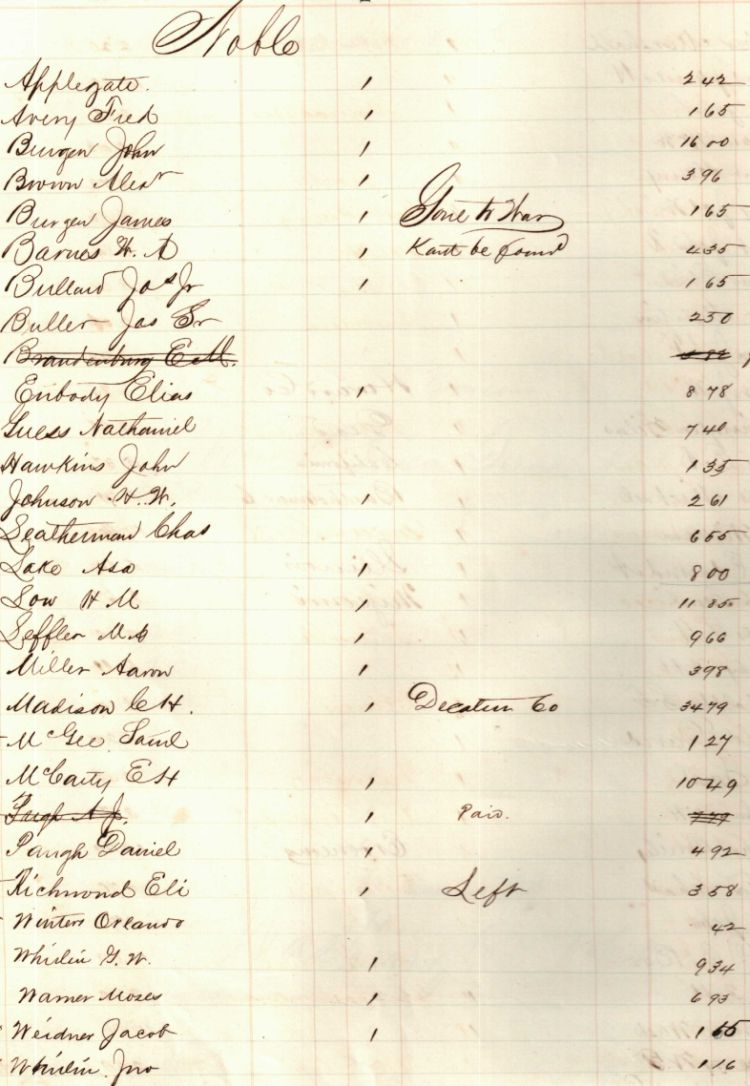 Noble
Applegate. 〃 2 42
Avery Fred 〃 1 65
Burgen John 〃 16 00
Brown Alexr 〃 3 96
Burgen James 〃 Gone to War 1 65
Barnes W. A 〃 Kant be found 4 35
Bullard Jos Jr 〃 1 65
Buller Jos Sr 2 50
Brandenburg E. M.
Enbody Elias 〃 8 78
Guess Nathaniel 7 40
Hawkins John 1 35
Johnson H. W. 〃 2 61
Leatherman Chas 6 55
Lake Asa 〃 8 00
Low H M 〃 11 85
Leffler M. 〃 9 66
Miller Aaron 〃 3 98
Madison C H. 〃 Decatur Co 34 79
McGee Saml 1 27
McCarty E H 〃 10 49
Pugh A J. 〃 Paid.
Paugh Daniel 〃 4 92
Richmond Eli 〃 Left 3 58
Winters Orlando 42
Whislin G. W. 〃 9 34
Warner Moses 〃 6 93
Weidner Jacob 〃 1 65
Jno 1 16